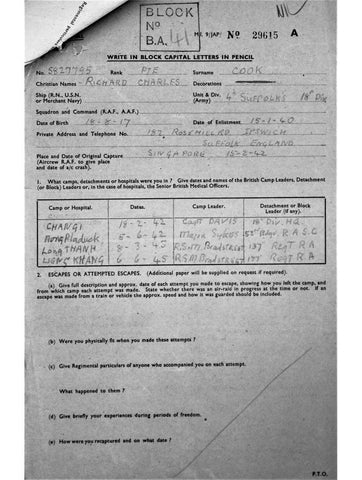 BLOCK
No
B.A. 41
M.I. 9/JAP/ No 29615 A
WRITE IN BLOCK CAPITAL LETTERS IN PENCIL
No. 5827795 Rank PTE Surname COOK
Christian Names RICHARD CHARLES Decorations
Ship (R.N., U.S.N. or Merchant Navy) Unit & Div. (Army) 4th SUFFOLKS 18th Div
Squadron and Command (R.A.F., A.A.F.)
Date of Birth 18-8-17 Date of Enlistment 15-1-40
Private Address and Telephone No. 157, ROSEHILL RD. IPSWICH
SUFFOLK ENGLAND
Place and Date of Original Capture SINGAPORE 15-2-42
(Aircrew R.A.F. to give place and date of a/c crash).
1. What camps, detachments or hospitals were you in? Give dates and names of the British Camp Leaders, Detachment
(or Block) Leaders or, in the case of hospitals, the Senior British Medical Officers.
Camp or Hospital. Dates. Camp Leader. Detachment or Block Leader (if any).
CHANGI 18-2-42 Capt DAVIS 18th Div. HQ
Nong Pladuck 5-6-42 Major Sykes RASC
LONG THANH 8-3-45 R.S.M. Bradstreet 137 REGT RA
LIENG KHANG 6-6-45 R.S.M. Bradstreet 137 REGT RA
2. ESCAPES OR ATTEMPTED ESCAPES. (Additional paper will be supplied on request if required).
(a) Give full description and approx. date of each attempt you made to escape, showing how you left the camp, and
from which camp each attempt was made. State whether there was an air-raid in progress at the time or not. If an
escape was made from a train or vehicle the approx. speed and how it was guarded should be included.
(b) Were you physically fit when you made these attempts?
(c) Give Regimental particulars of anyone who accompanied you on each attempt.
What happened to them?
(d) Give briefly your experiences during periods of freedom.
(e) How were you recaptured and on what date?
P.T.O.